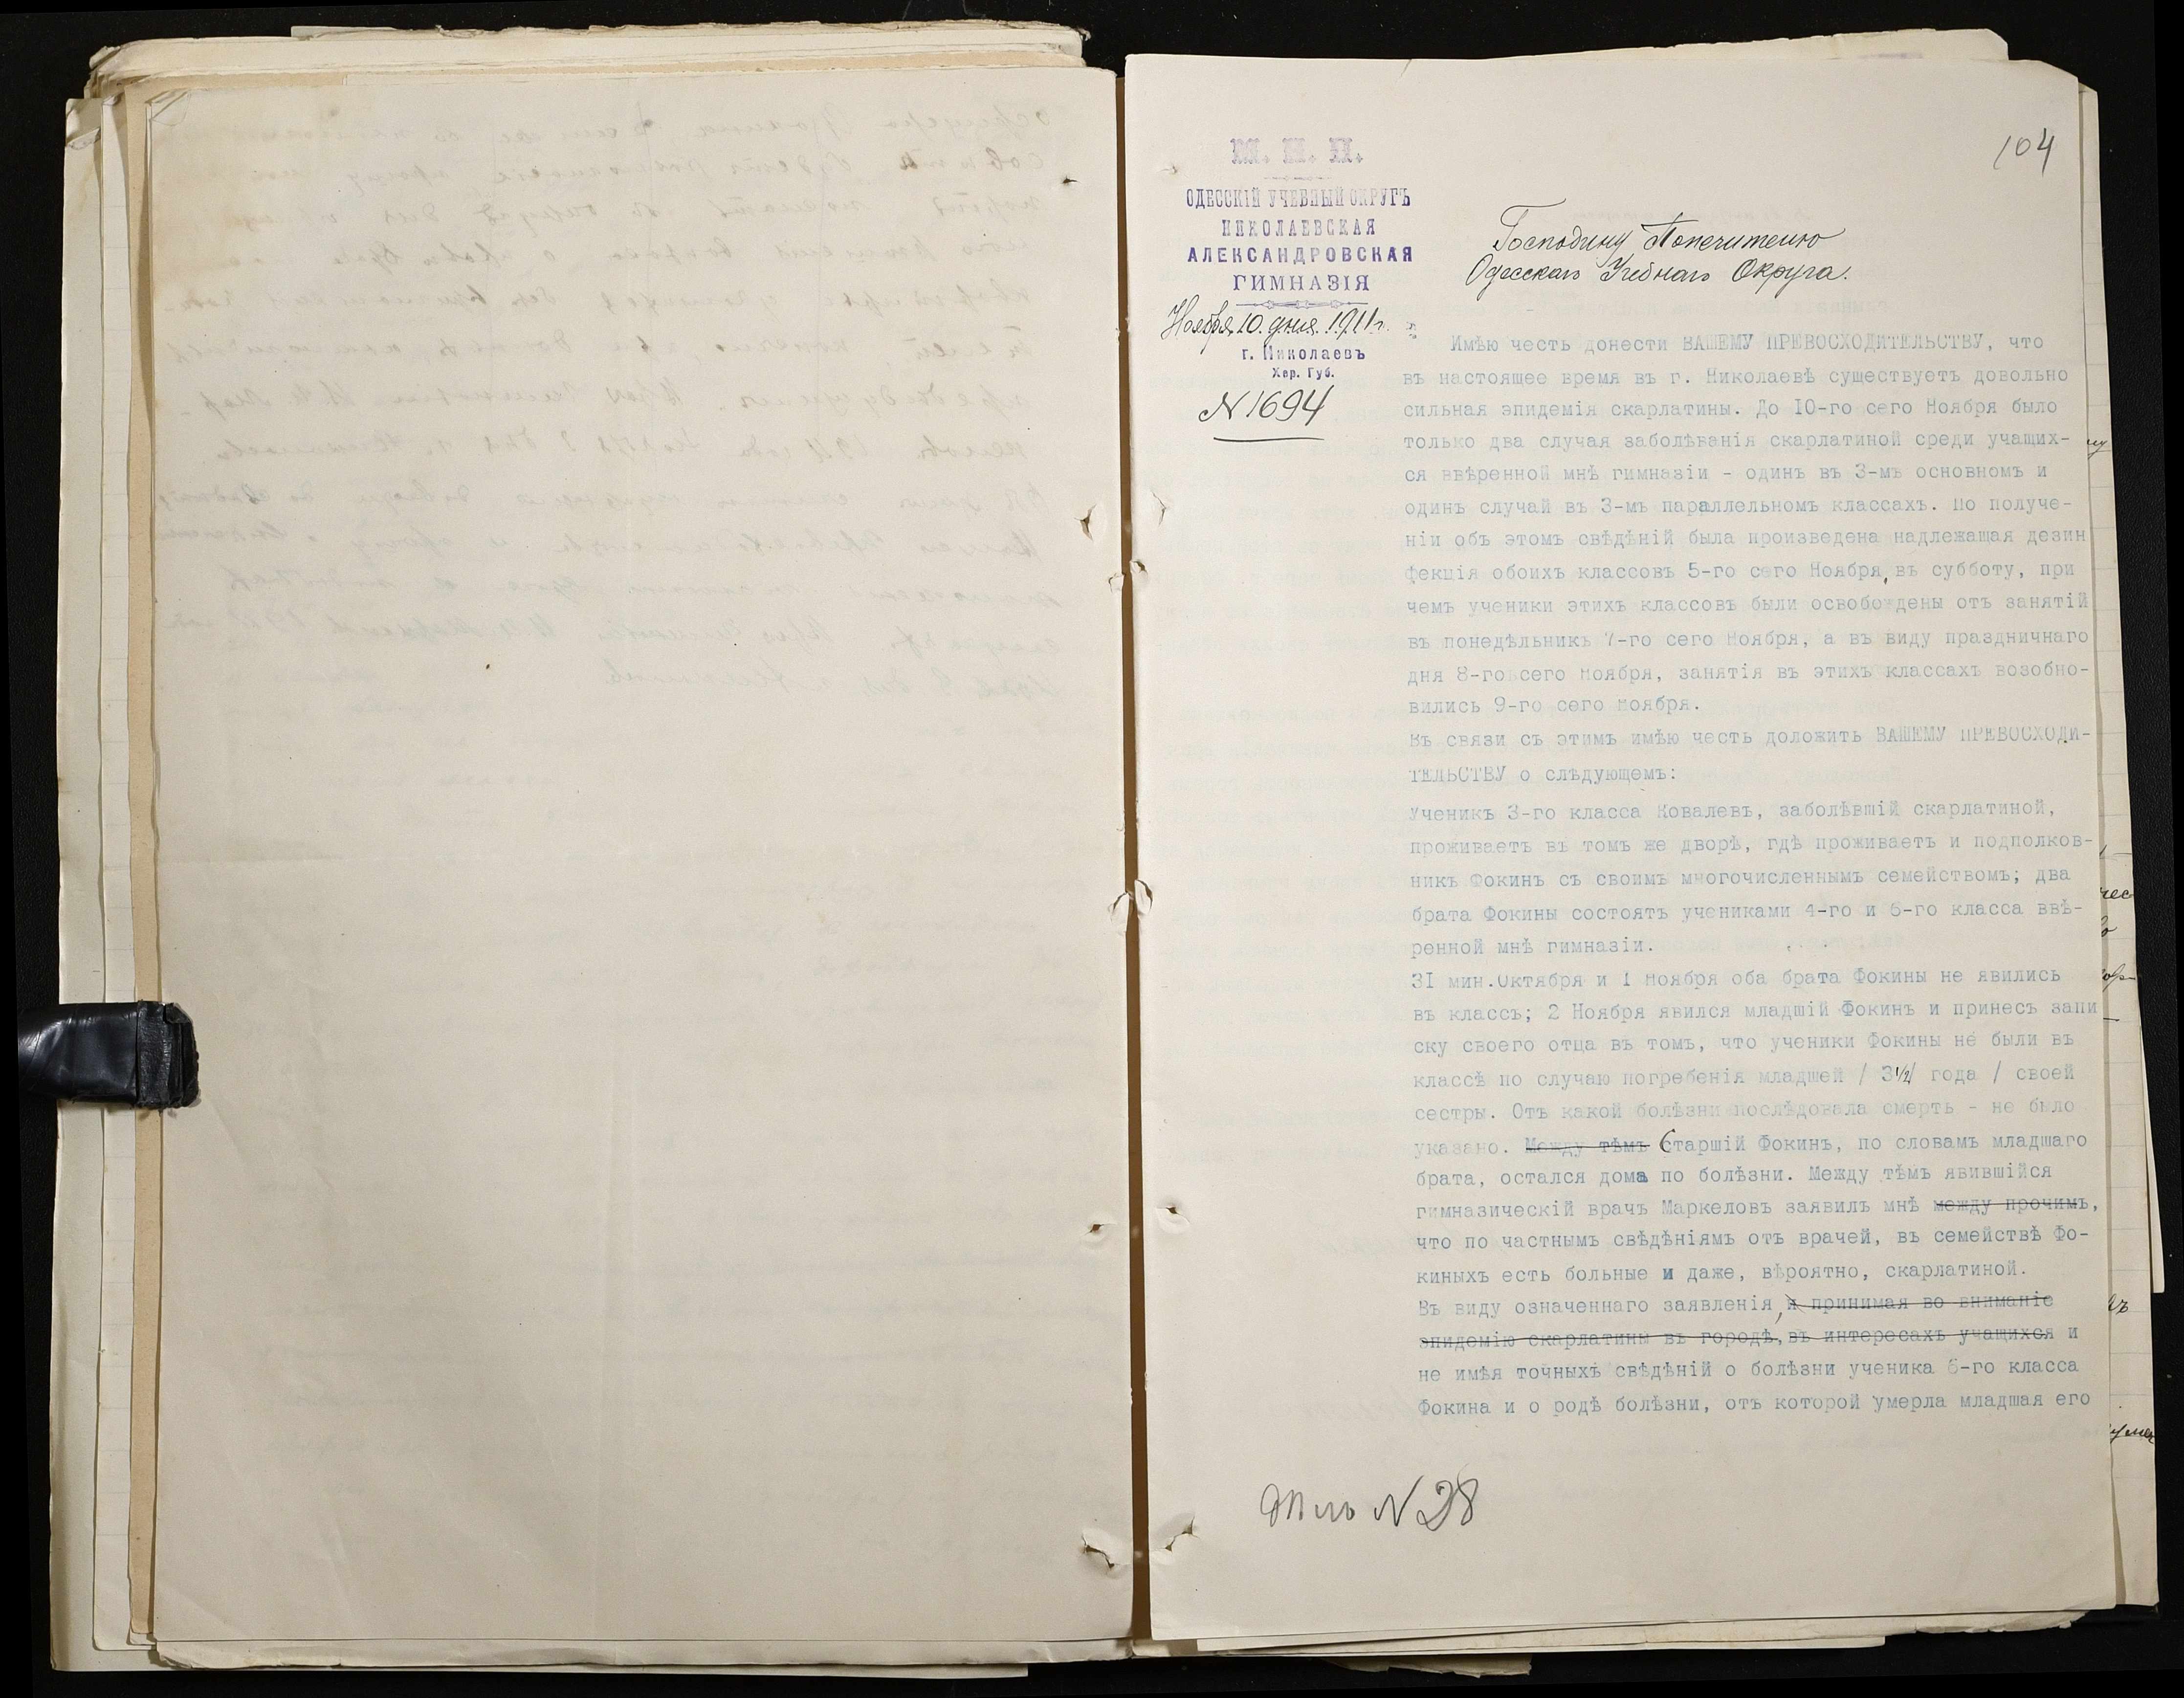 104
М. Н. П.
ОДЕССКІЙ УЧЕБНЫЙ ОКРУГЪ
НИКОЛАЕВСКАЯ
АЛЕКСАНДРОВСКАЯ
ГИМНАЗІЯ
Ноября 10 дня 1911 г.
г. Николаевъ
Хер. Губ.
№ 1694
Господину Попечителю
Одесскаго Учебнаго Округа.
Имѣю честь донести ВАШЕМУ ПРЕВОСХОДИТЕЛЬСТВУ, что
въ настоящее время въ г. Николаевѣ существуетъ довольно
сильная эпидемія скарлатины. До 10-го сего Ноября было
только два случая заболѣванія скарлатиной среди учащих-
ся ввѣренной мнѣ гимназіи - одинъ въ 3-мъ основномъ и
одинъ случай въ 3-мъ параллельномъ классахъ. По получе-
ніи объ этомъ свѣдѣній была произведена надлежащая дезин
фекція обоихъ классовъ 5-го сего Ноября, въ субботу, при
чемъ ученики этихъ классовъ были освобождены отъ занятій
въ понедѣльникъ 7-го сего Ноября, а въ виду праздничнаго
дня 8-го сего Ноября, занятія въ этихъ классахъ возобно-
вились 9-го сего Ноября.
Въ связи съ этимъ имѣю честь доложить ВАШЕМУ ПРЕВОСХОДИ-
ТЕЛЬСТВУ о слѣдующемъ:
Ученикъ 3-го класса Ковалевъ, заболѣвшій скарлатиной,
проживаетъ въ томъ же дворѣ, гдѣ проживаетъ и подполков-
никъ Фокинъ съ своимъ многочисленнымъ семействомъ; два
брата Фокины состоятъ учениками 4-го и 6-го класса ввѣ-
ренной мнѣ гимназіи.
31 мин.Октября и 1 Ноября оба брата Фокины не явились
въ классъ; 2 Ноября явился младшій Фокинъ и принесъ запи
ску своего отца въ томъ, что ученики Фокины не были въ
классѣ по случаю погребенія младшей / 3 1/2 года / своей
сестры. Отъ какой болѣзни послѣдовала смерть - не было
указано. Между тѣмъ Старшій Фокинъ, по словамъ младшаго
брата, остался дома по болѣзни. Между тѣмъ явившійся
гимназическій врачъ Маркеловъ заявилъ мнѣ между прочимъ,
что по частнымъ свѣдѣніямъ отъ врачей, въ семействѣ Фо-
киныхъ есть больные и даже, вѣроятно, скарлатиной.
Въ виду означеннаго заявленія, и принимая во вниманіе
эпидемію скарлатины въ городѣ, въ интересахъ учащихся и
не имѣя точныхъ свѣдѣній о болѣзни ученика 6-го класса
Фокина и о родѣ болѣзни, отъ которой умерла младшая его
№ 28